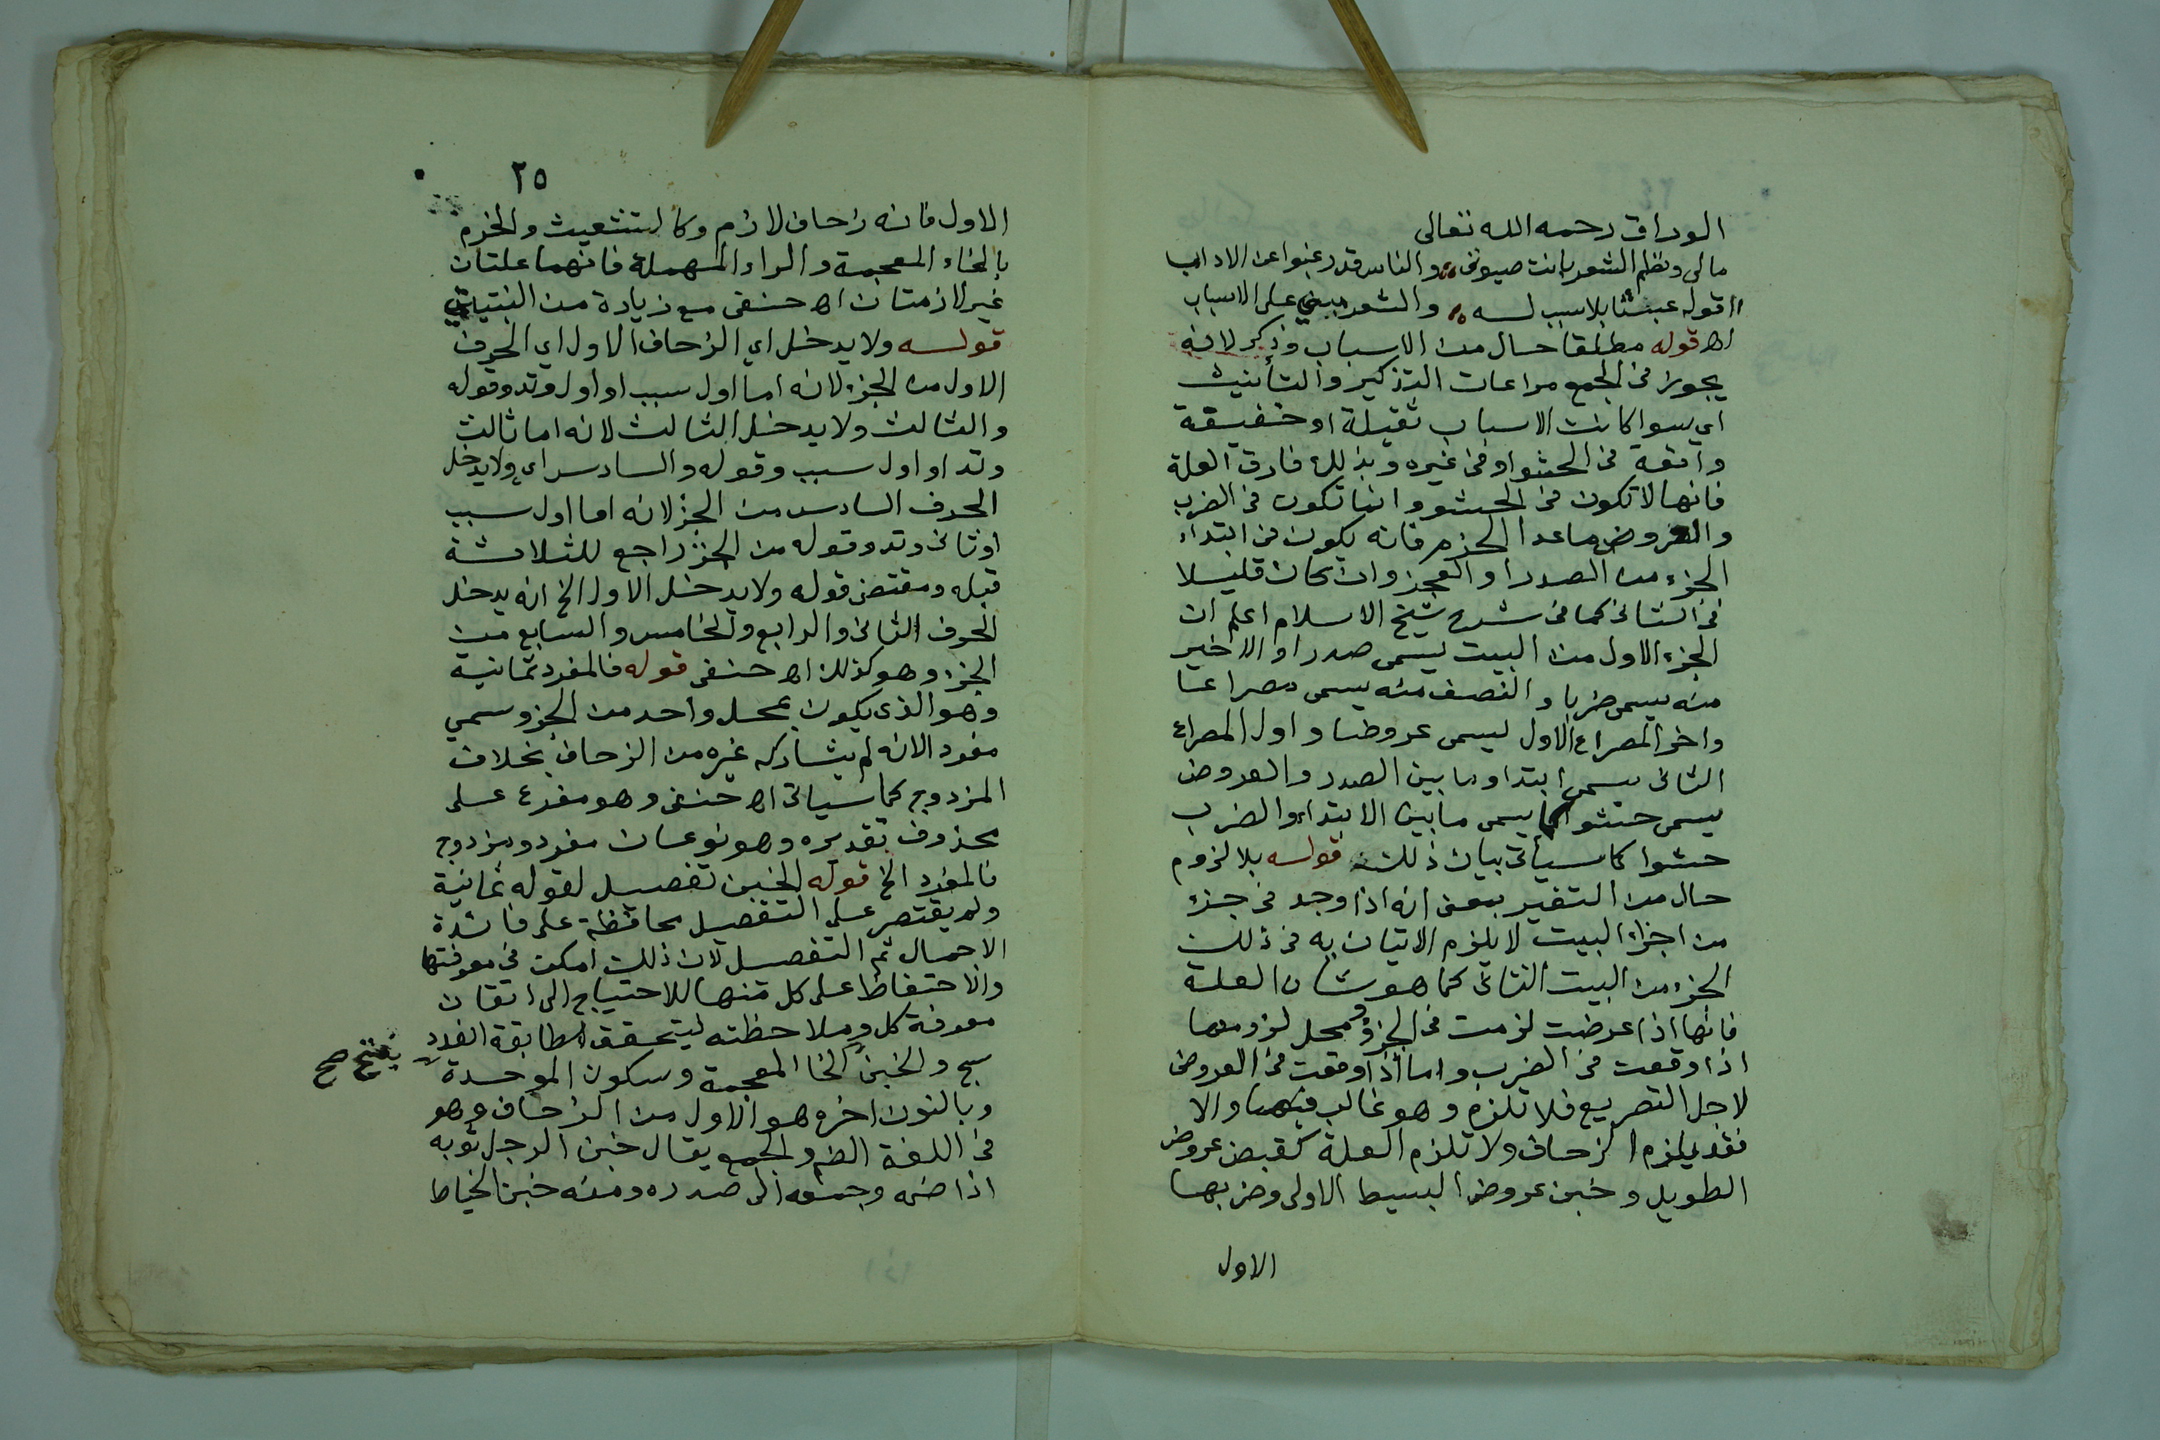 الوراق رحمه الله تعالى
مالى ونظم الشعر بانت صبوتى والناس قد رغبوا عن الاداب
اقوله عبثا بلا سبب له والشعر مبنى على الاسباب
اه قوله مطلقا حال من الاسباب وذكر لانه
يجوز فى الجمع مراعات التذكير والتأنيث
اي سوا كانت الاسباب ثقيلة او خفيفة
واقعة فى الحشو او فى غيره وبذلك فارق العلة
فانها لا تكون فى الحشو وانما تكون فى الضرب
والعروض ماعدا الخزم فانه يكون فى ابتداء
الجزء من الصدر او العجز وان كان قليلا
فى الثانى كما فى شرح شيخ الاسلام اعلم ان
الجزء الاول من البيت يسمى صدرا والاخير
منه يسمى ضربا والنصف منه يسمى مصراعا
واخر المصراع الاول يسمى عروضا واول المصراع
الثانى يسمى ابتدا وما بين الصدر والعروض
يسمى حشوا كما يسمى ما بين الابتداء والضرب
حشوا كما سيأتى بيان ذلك قوله بلا لزوم
حال من التغير بمعنى انه اذا وجد فى جزء
من اجزاء البيت لا يلزم الاتيان به فى ذلك
الجزء من البيت الثانى كما هو شان العلة
فانها اذا عرضت لزمت فى الجزؤ ومحل لزومها
اذا وقعت فى الضرب واما اذا وقعت فى العروض
لاجل التصريع فلا تلزم وهو غالب فيهما والا
فقد يلزم الزحاف ولا تلزم العلة كقبض عروض
الطويل وخبن عروض البسيط الاولى وضربها
الاول
٢٥
الاول فانه زحاف لازم وكالتشعيث والخزم
بالخاء المعجمة والراء المهملة فانهما علتان
غير لازمتان اه حنفى مع زيادة من
قوله ولا يدخل اي الزحاف الاول اي الحرف
الاول من الجزء لانه اما اول سبب او اول وتد وقوله
والثالث ولا يدخل الثالث لانه اما ثالث
وتد او اول سبب وقوله والسادس اي ولا يدخل
الحرف السادس من الجزء لانه اما اول سبب
او ثانى وتد وقوله من الجزء راجع للثلاثة
قبله ومقتضى قوله ولا يدخل الاول الخ انه يدخل
الحرف الثانى والرابع والخامس والسابع من
الجزء وهو كذلك اه حنفى قوله فالمفرد ثمانية
وهو الذى يكون بمحل واحد من الجزو سمي
مفردا لانه لم يشاركه غيره من الزحاف بخلاف
المزدوج كما سياتى اه حنفى وهو مفرع على
محذوف تقديره وهو نوعان مفرد ومزدوج
فالمفرد الخ قوله الخبن تفصيل لقوله ثمانية
ولم يقتصر على التفصيل محافظة على فائدة
الاجمال ثم التفصيل لان ذلك امكن فى معرفتها
والاحتفاظ على كل منها للاحتياج الى اتقان
معرفة كل وملاحظته ليتحقق مطابقة الفرد
سج والخبن الخا المعجمة وسكون الموحدة
بفتح صح
وبالنون اخره هو الاول من الزحاف وهو
فى اللغة الضم والجمع يقال خبن الرجل ثوبه
اذا ضمه وجمعه الى صدره ومنه خبن الخياط